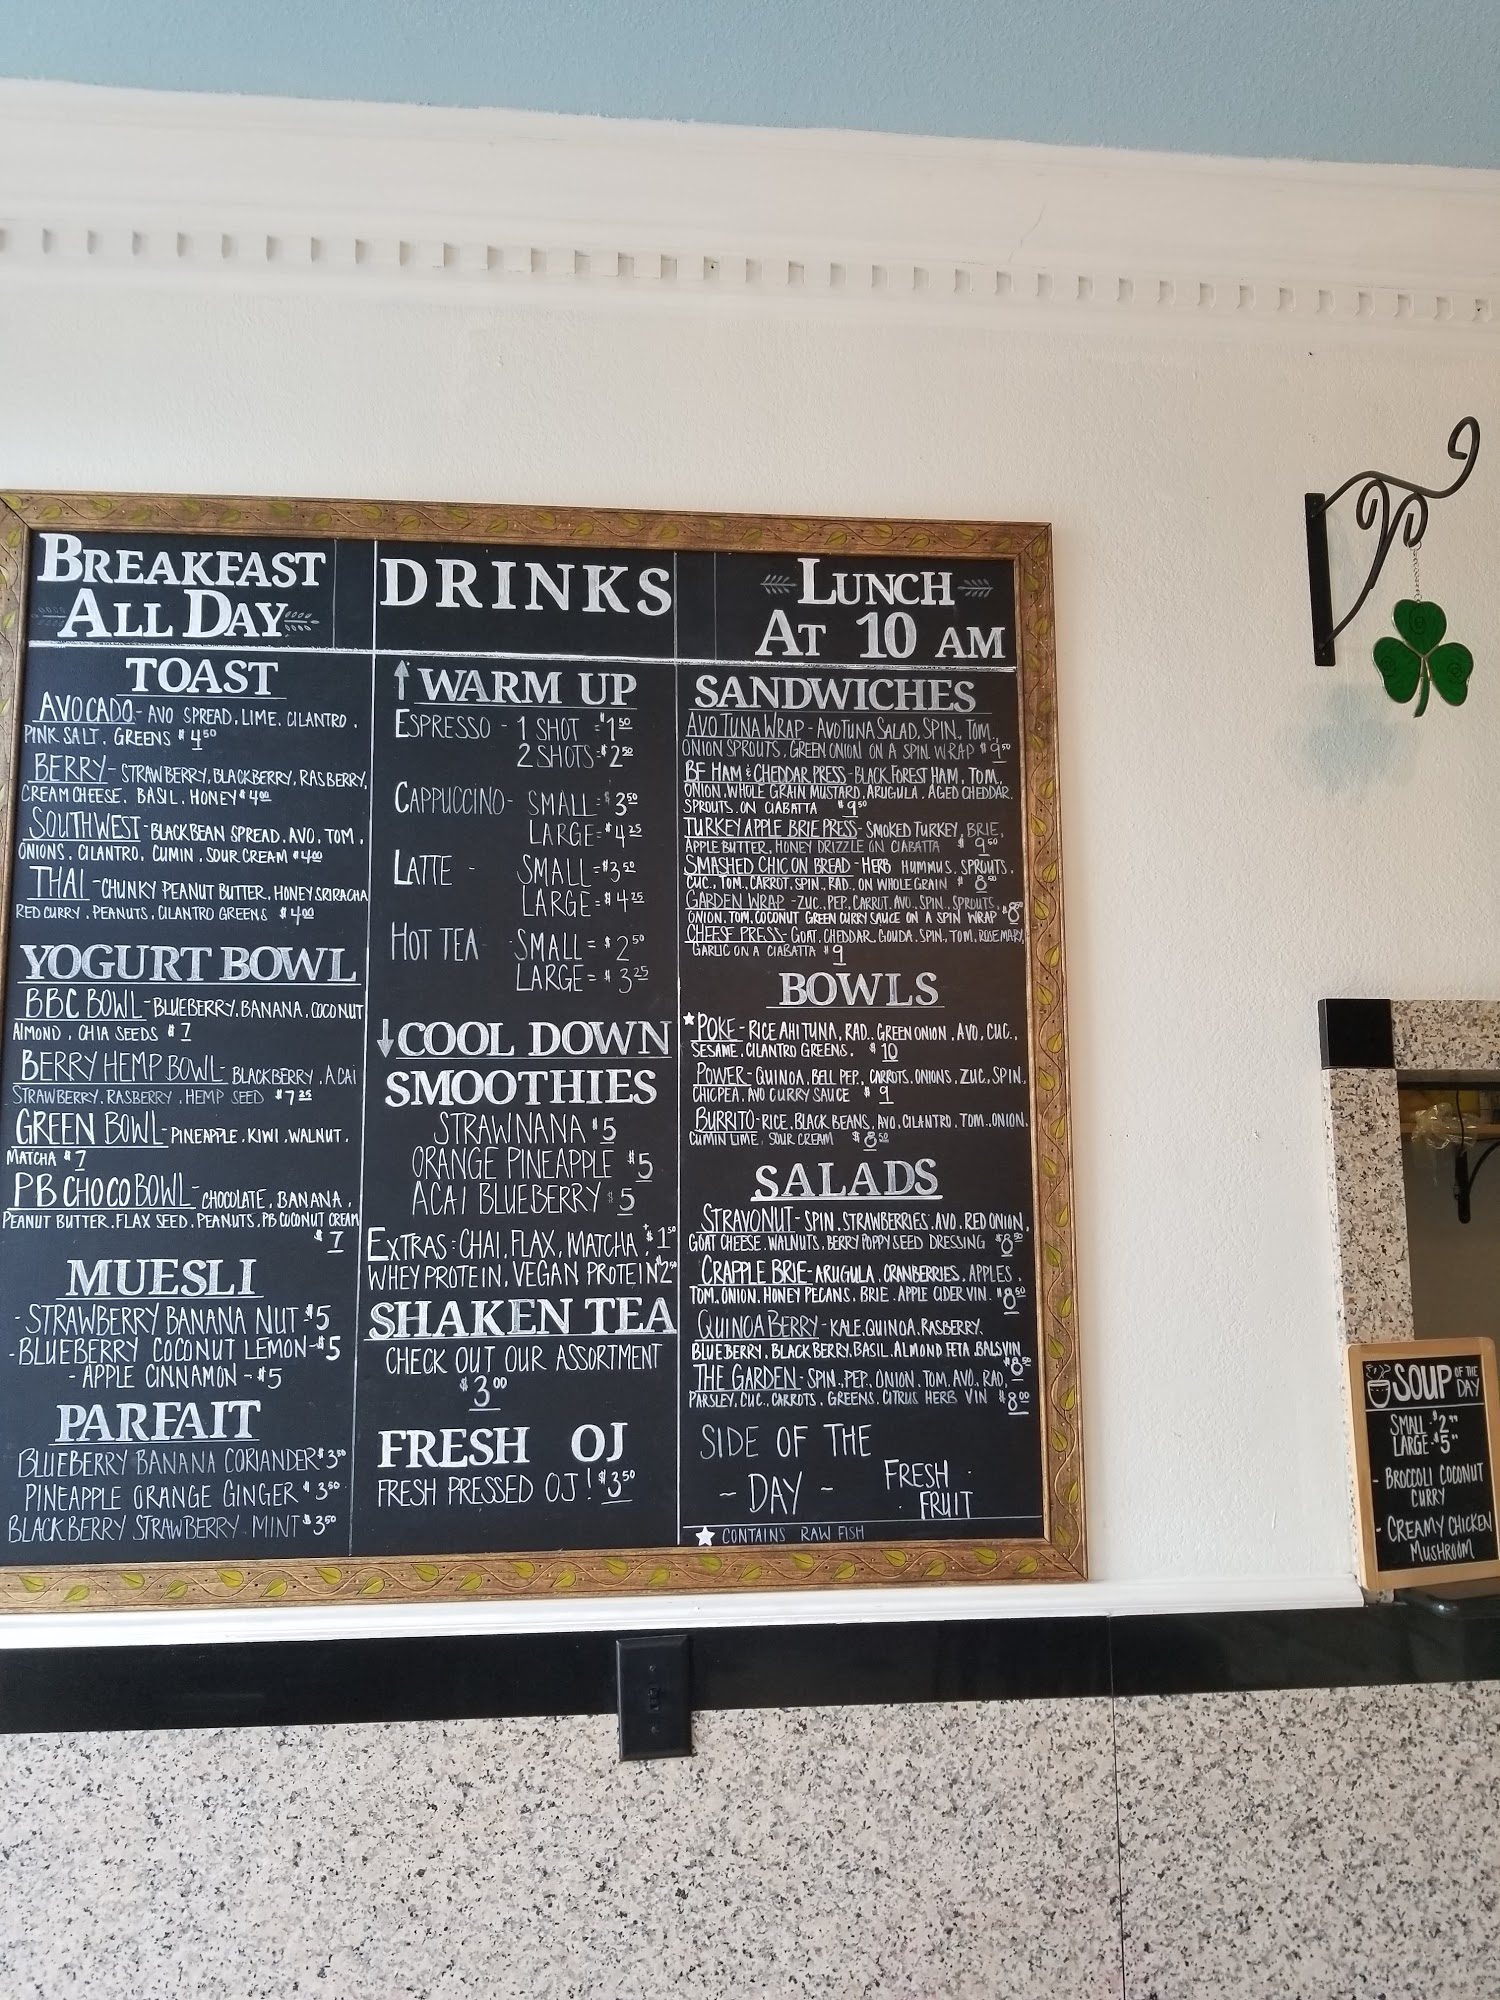 BREAKFAST
ALL DAY
TOAST
AVOCADO - AVO SPREAD, LIME, CILANTRO,
PINK SALT, GREENS $4.50
BERRY - STRAWBERRY, BLACKBERRY, RASBERRY,
CREAM CHEESE, BASIL, HONEY $4.00
SOUTHWEST - BLACKBEAN SPREAD, AVO, TOM,
ONIONS, CILANTRO, CUMIN, SOUR CREAM $4.00
THAI - CHUNKY PEANUT BUTTER, HONEY SRIRACHA
RED CURRY, PEANUTS, CILANTRO GREENS $4.00
YOGURT BOWL
BBC BOWL - BLUEBERRY, BANANA, COCONUT
ALMOND, CHIA SEEDS $7
BERRY HEMP BOWL - BLACKBERRY, ACAI
STRAWBERRY, RASBERRY, HEMP SEED $7.25
GREEN BOWL - PINEAPPLE, KIWI, WALNUT,
MATCHA $7
PB CHOCO BOWL - CHOCOLATE, BANANA,
PEANUT BUTTER, FLAX SEED, PEANUTS, PB COCONUT CREAM
$7
MUESLI
- STRAWBERRY BANANA NUT - $5
- BLUEBERRY COCONUT LEMON - $5
- APPLE CINNAMON - $5
PARFAIT
BLUEBERRY BANANA CORIANDER $3.50
PINEAPPLE ORANGE GINGER $3.50
BLACKBERRY STRAWBERRY MINT $3.50
DRINKS
↑ WARM UP
ESPRESSO - 1 SHOT = $1.50
2 SHOTS = $2.50
CAPPUCCINO - SMALL = $3.50
LARGE = $4.25
LATTE - SMALL = $3.50
LARGE = $4.25
HOT TEA - SMALL = $2.50
LARGE = $3.25
↓ COOL DOWN
SMOOTHIES
STRAWNANA $5
ORANGE PINEAPPLE $5
ACAI BLUEBERRY $5
EXTRAS: CHAI, FLAX, MATCHA, + $1.50
WHEY PROTEIN, VEGAN PROTEIN
SHAKEN TEA
CHECK OUT OUR ASSORTMENT
$3.00
FRESH OJ
FRESH PRESSED OJ! $3.50
LUNCH
AT 10 AM
SANDWICHES
AVO TUNA WRAP - AVO TUNA SALAD, SPIN, TOM,
ONION SPROUTS, GREEN ONION ON A SPIN. WRAP $9.50
BF HAM & CHEDDAR PRESS - BLACK FOREST HAM, TOM,
ONION, WHOLE GRAIN MUSTARD, ARUGULA, AGED CHEDDAR,
SPROUTS, ON CIABATTA $9.50
TURKEY APPLE BRIE PRESS - SMOKED TURKEY, BRIE,
APPLE BUTTER, HONEY DRIZZLE ON CIABATTA $9.50
SMASHED CHIC ON BREAD - HERB HUMMUS, SPROUTS,
CUC., TOM., CARROT, SPIN., RAD. ON WHOLE GRAIN $8.50
GARDEN WRAP - ZUC., PEP, CARROT, AVO, SPIN, SPROUTS,
ONION, TOM, COCONUT GREEN CURRY SAUCE ON A SPIN WRAP $8
CHEESE PRESS - GOAT, CHEDDAR, GOUDA, SPIN., TOM, ROSEMARY,
GARLIC ON A CIABATTA $9
BOWLS
★POKE - RICE AHI TUNA, RAD., GREEN ONION, AVO, CUC.,
SESAME, CILANTRO GREENS. $10
POWER - QUINOA, BELL PEP., CARROTS, ONIONS, ZUC., SPIN,
CHICPEA, AVO CURRY SAUCE $9
BURRITO - RICE, BLACK BEANS, AVO, CILANTRO, TOM., ONION,
CUMIN LIME, SOUR CREAM $8.50
SALADS
STRAVONUT - SPIN, STRAWBERRIES, AVO, RED ONION,
GOAT CHEESE, WALNUTS, BERRY POPPY SEED DRESSING $8.50
CRAPPLE BRIE - ARUGULA, CRANBERRIES, APPLES,
TOM, ONION, HONEY PECANS, BRIE, APPLE CIDER VIN. $8.50
QUINOA BERRY - KALE, QUINOA, RASBERRY,
BLUEBERRY, BLACKBERRY, BASIL, ALMOND FETA, BALS VIN
$8.50
THE GARDEN - SPIN., PEP, ONION, TOM, AVO., RAD,
PARSLEY, CUC., CARROTS, GREENS, CITRUS HERB VIN $8.00
SIDE OF THE
- DAY - FRESH
FRUIT
★ CONTAINS RAW FISH
SOUP OF THE DAY
SMALL - $2
LARGE - $5
- BROCCOLI COCONUT
CURRY
- CREAMY CHICKEN
MUSHROOM